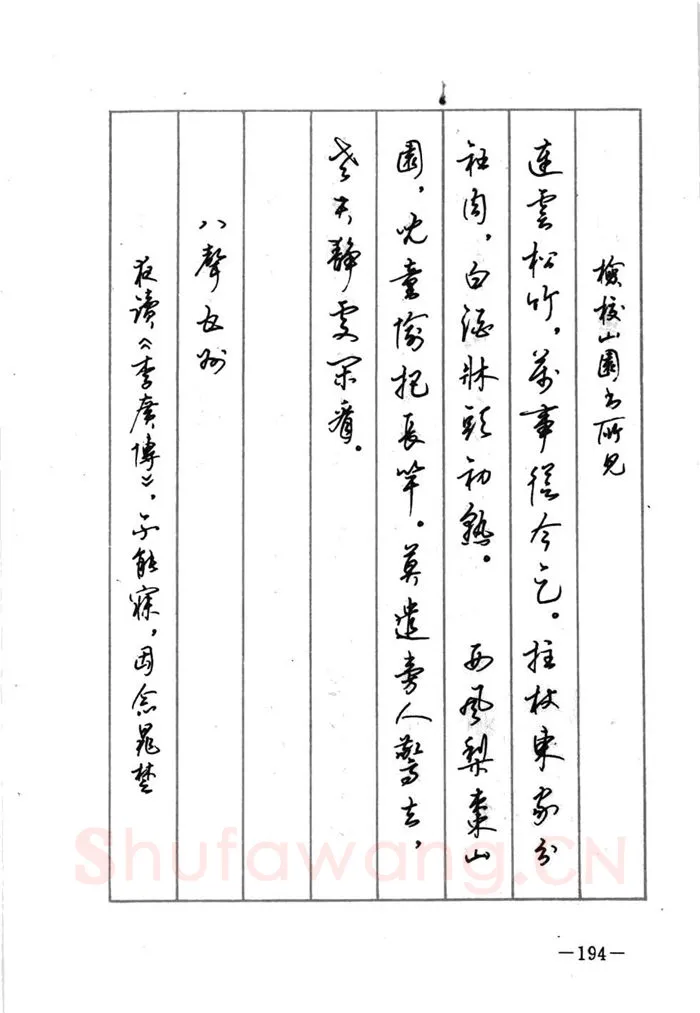 檢校山園书所見
連雲松竹，萬事從今足。拄杖東家分
社肉，白酒牀頭初熟。 西風梨棗山
園，兒童偷把長竿。莫遣旁人驚去，
老夫靜處閑看。
八聲甘州
夜讀《李廣傳》，不能寐，因念晁楚
Shufawang.CN
—194—